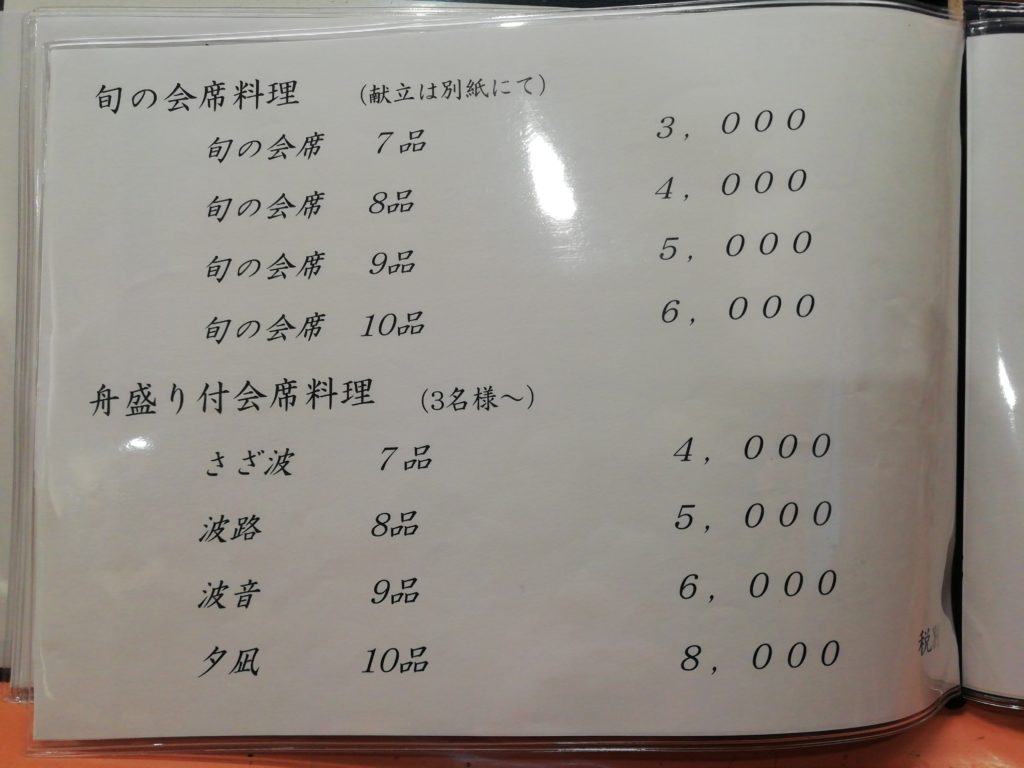 旬の会席料理 (献立は別紙にて)
旬の会席 7品 3,000
旬の会席 8品 4,000
旬の会席 9品 5,000
旬の会席 10品 6,000
舟盛り付会席料理 (3名様~)
さざ波 7品 4,000
波路 8品 5,000
波音 9品 6,000
夕凪 10品 8,000
税別